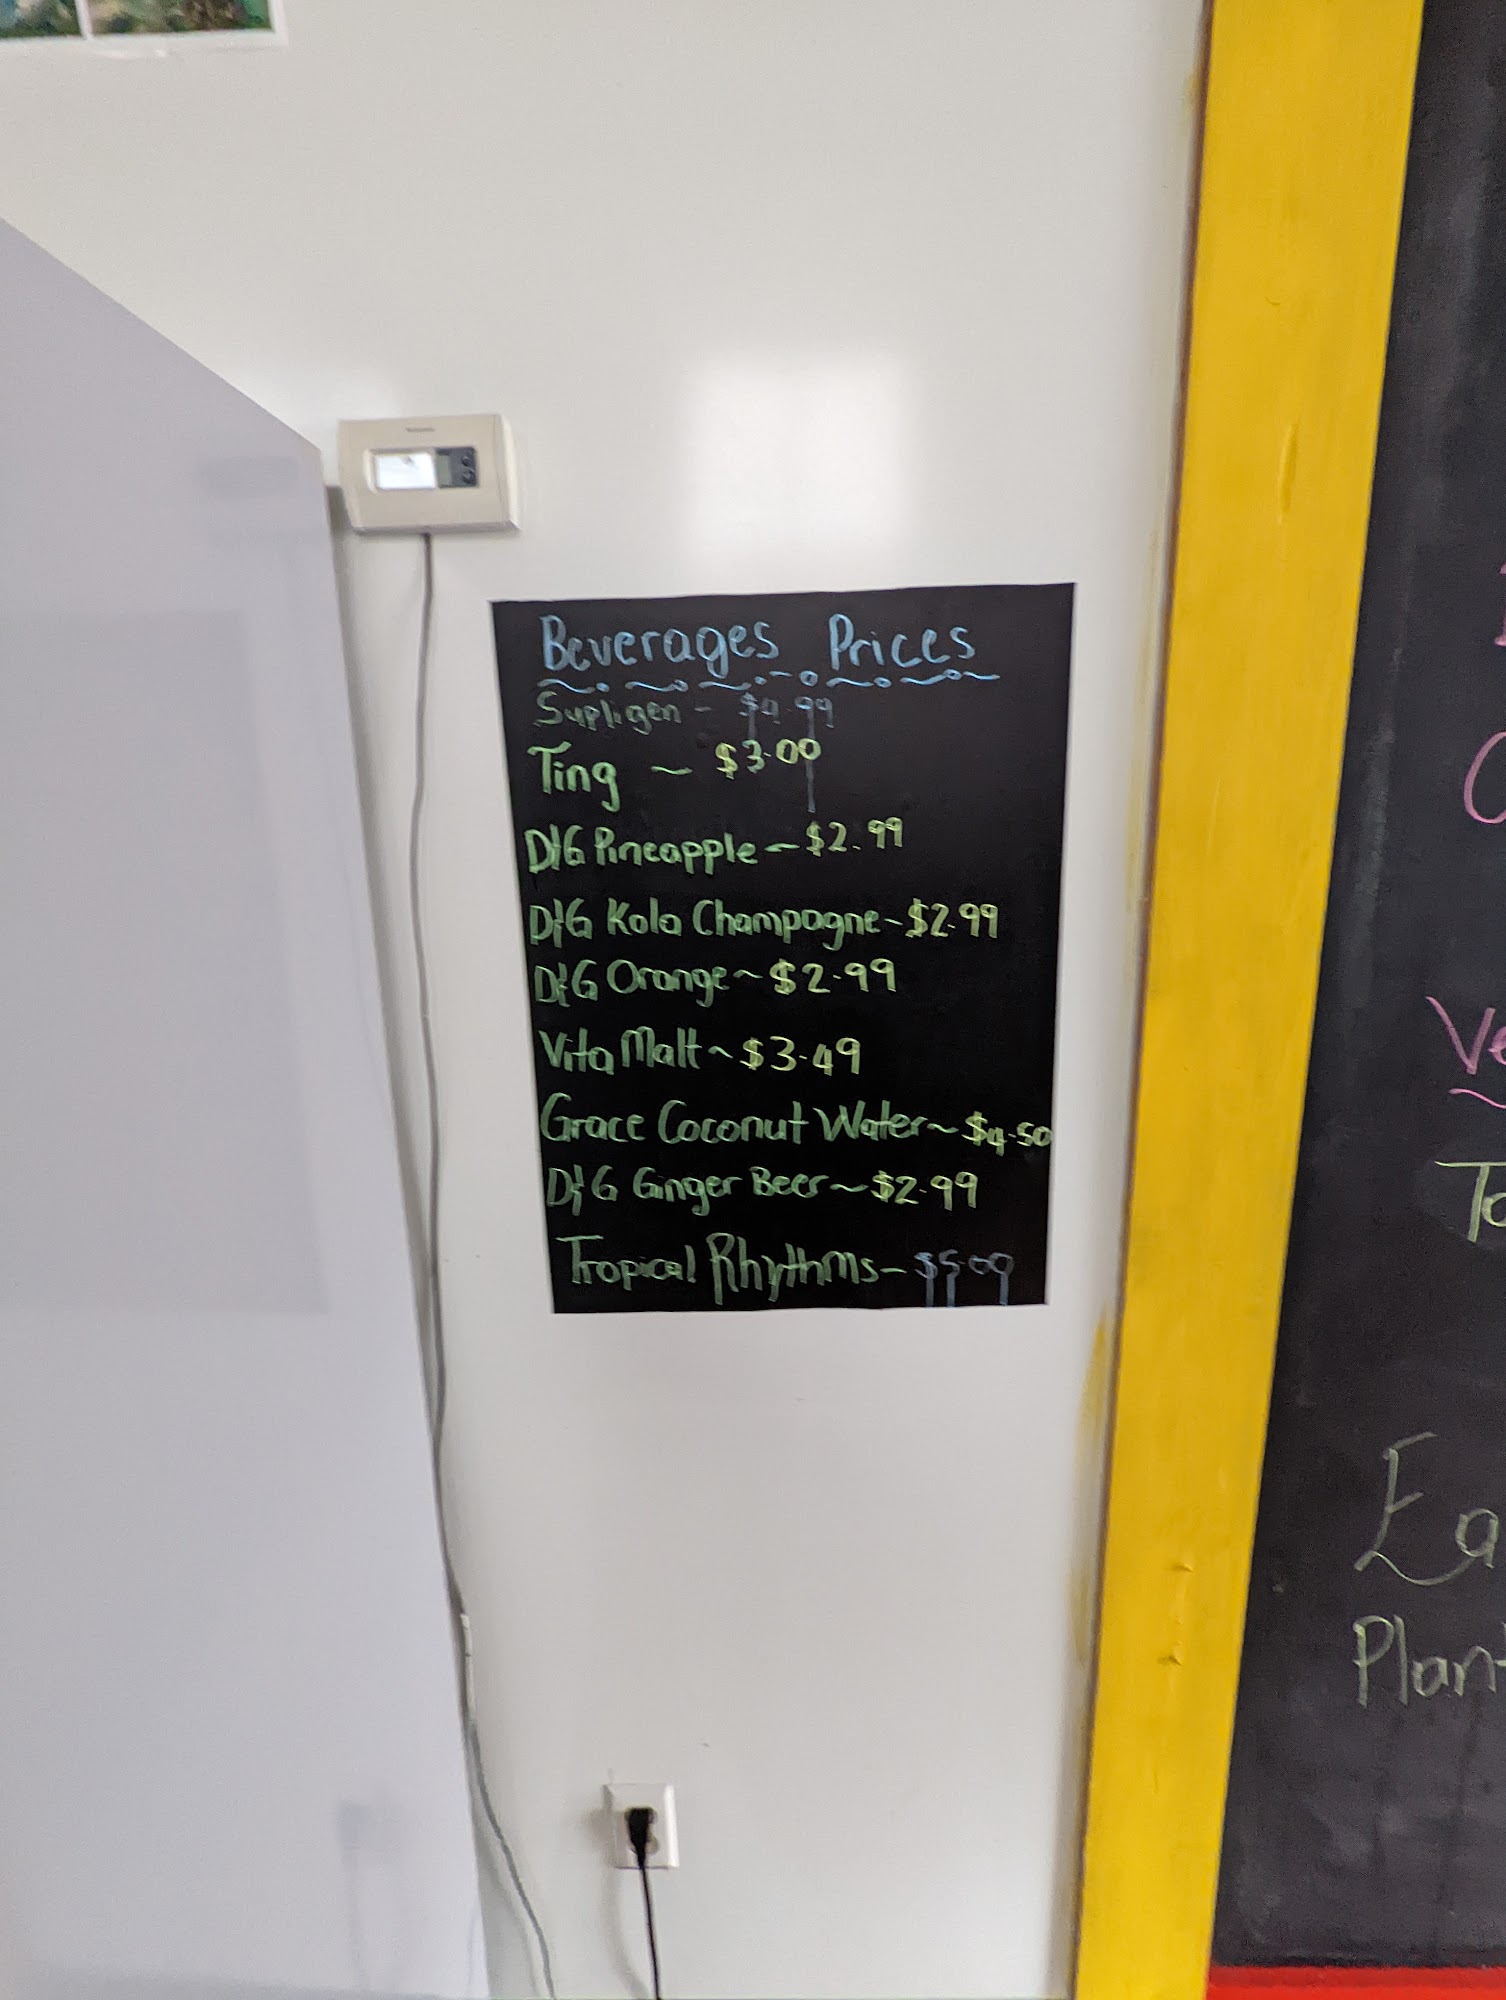 Beverages Prices
Supligen - $4.99
Ting ~ $3.00
D&G Pineapple ~ $2.99
D&G Kola Champagne - $2.99
D&G Orange ~ $2.99
Vita Malt ~ $3.49
Grace Coconut Water ~ $4.50
D&G Ginger Beer ~ $2.99
Tropical Rhythms - $5.09